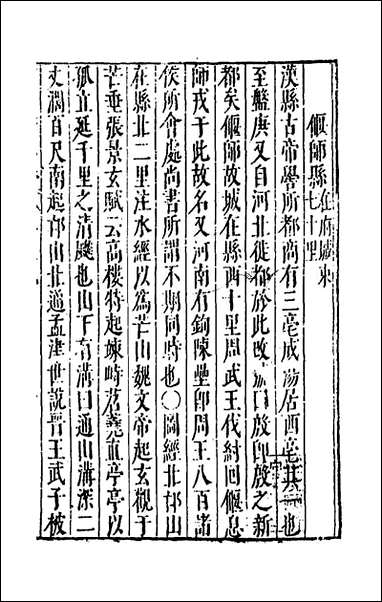 偃師縣在府城東七十里
漢縣古帝嚳所都商有三亳成湯居西亳其一也
至盤庚又自河北徙都於此改號曰殷即殷之新
都矣偃師故城在縣西十里周武王伐紂回偃息
師戎于此故名又河南有鉤陳壘即周王八百諸
侯所會處尚書所謂不期同時也〇圖經北邙山
在縣北二里注水經以爲芒山魏文帝起玄觀于
芒垂張景玄賦云高樓特起竦峙苕嶤直亭亭以
孤立延千里之清飈也山下有溝曰通山溝深二
丈濶百尺南起邙山北通孟津世說晉王武子被